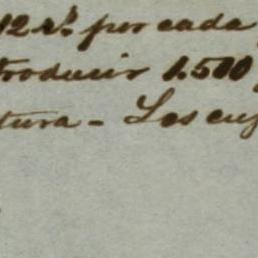 12 r.s por cada
troducir 1.500
tura - Los cuf